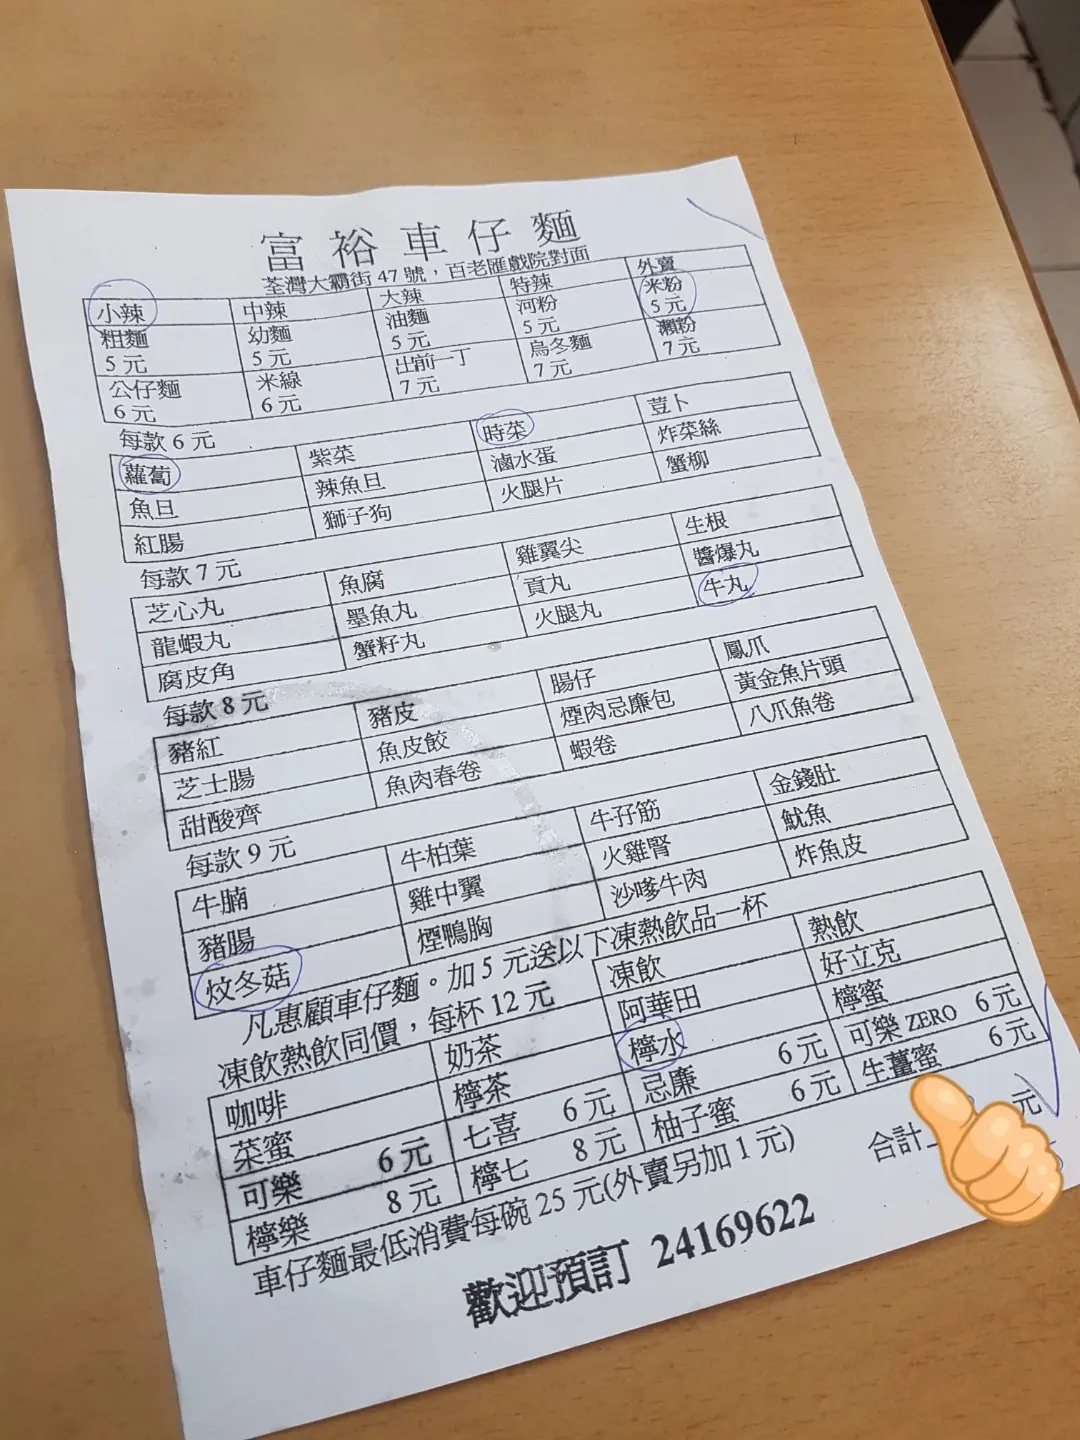 富裕車仔麵
荃灣大霸街 47 號，百老匯戲院對面
小辣 中辣 大辣 特辣 外賣
粗麵 幼麵 油麵 河粉 米粉
5 元 5 元 5 元 5 元 5 元
公仔麵 米線 出前一丁 烏冬麵 瀨粉
6 元 6 元 7 元 7 元 7 元
每款 6 元
蘿蔔 紫菜 時菜 荳卜
魚旦 辣魚旦 滷水蛋 炸菜絲
紅腸 獅子狗 火腿片 蟹柳
每款 7 元
芝心丸 魚腐 雞翼尖 生根
龍蝦丸 墨魚丸 貢丸 醬爆丸
腐皮角 蟹籽丸 火腿丸 牛丸
每款 8 元
豬紅 豬皮 腸仔 鳳爪
芝士腸 魚皮餃 煙肉忌廉包 黃金魚片頭
甜酸齊 魚肉春卷 蝦卷 八爪魚卷
每款 9 元
牛腩 牛柏葉 牛孖筋 金錢肚
豬腸 雞中翼 火雞腎 魷魚
炆冬菇 煙鴨胸 沙嗲牛肉 炸魚皮
凡惠顧車仔麵。加 5 元送以下凍熱飲品一杯
凍飲熱飲同價，每杯 12 元 凍飲 熱飲
咖啡 奶茶 阿華田 好立克
菜蜜 檸茶 檸水 檸蜜
可樂 6 元 七喜 6 元 忌廉 6 元 可樂 ZERO 6 元
檸樂 8 元 檸七 8 元 柚子蜜 6 元 生薑蜜 6 元
車仔麵最低消費每碗 25 元(外賣另加 1 元) 合計 元
歡迎預訂 24169622